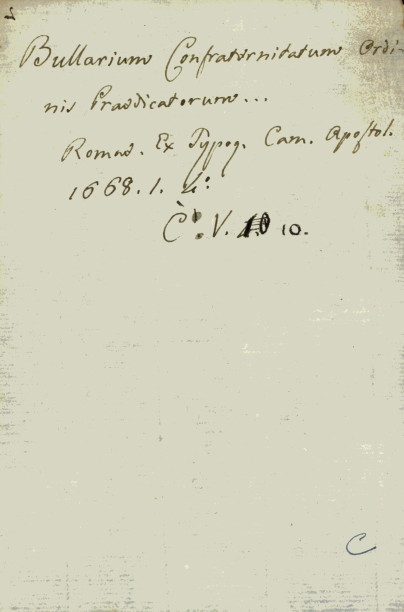 Bullarium Confraternitatum Ordi-
nis Praedicatorum...
Romae. Ex Typog. Cam. Apostol.
1668. 1. 4º.
C. V. 10.
C